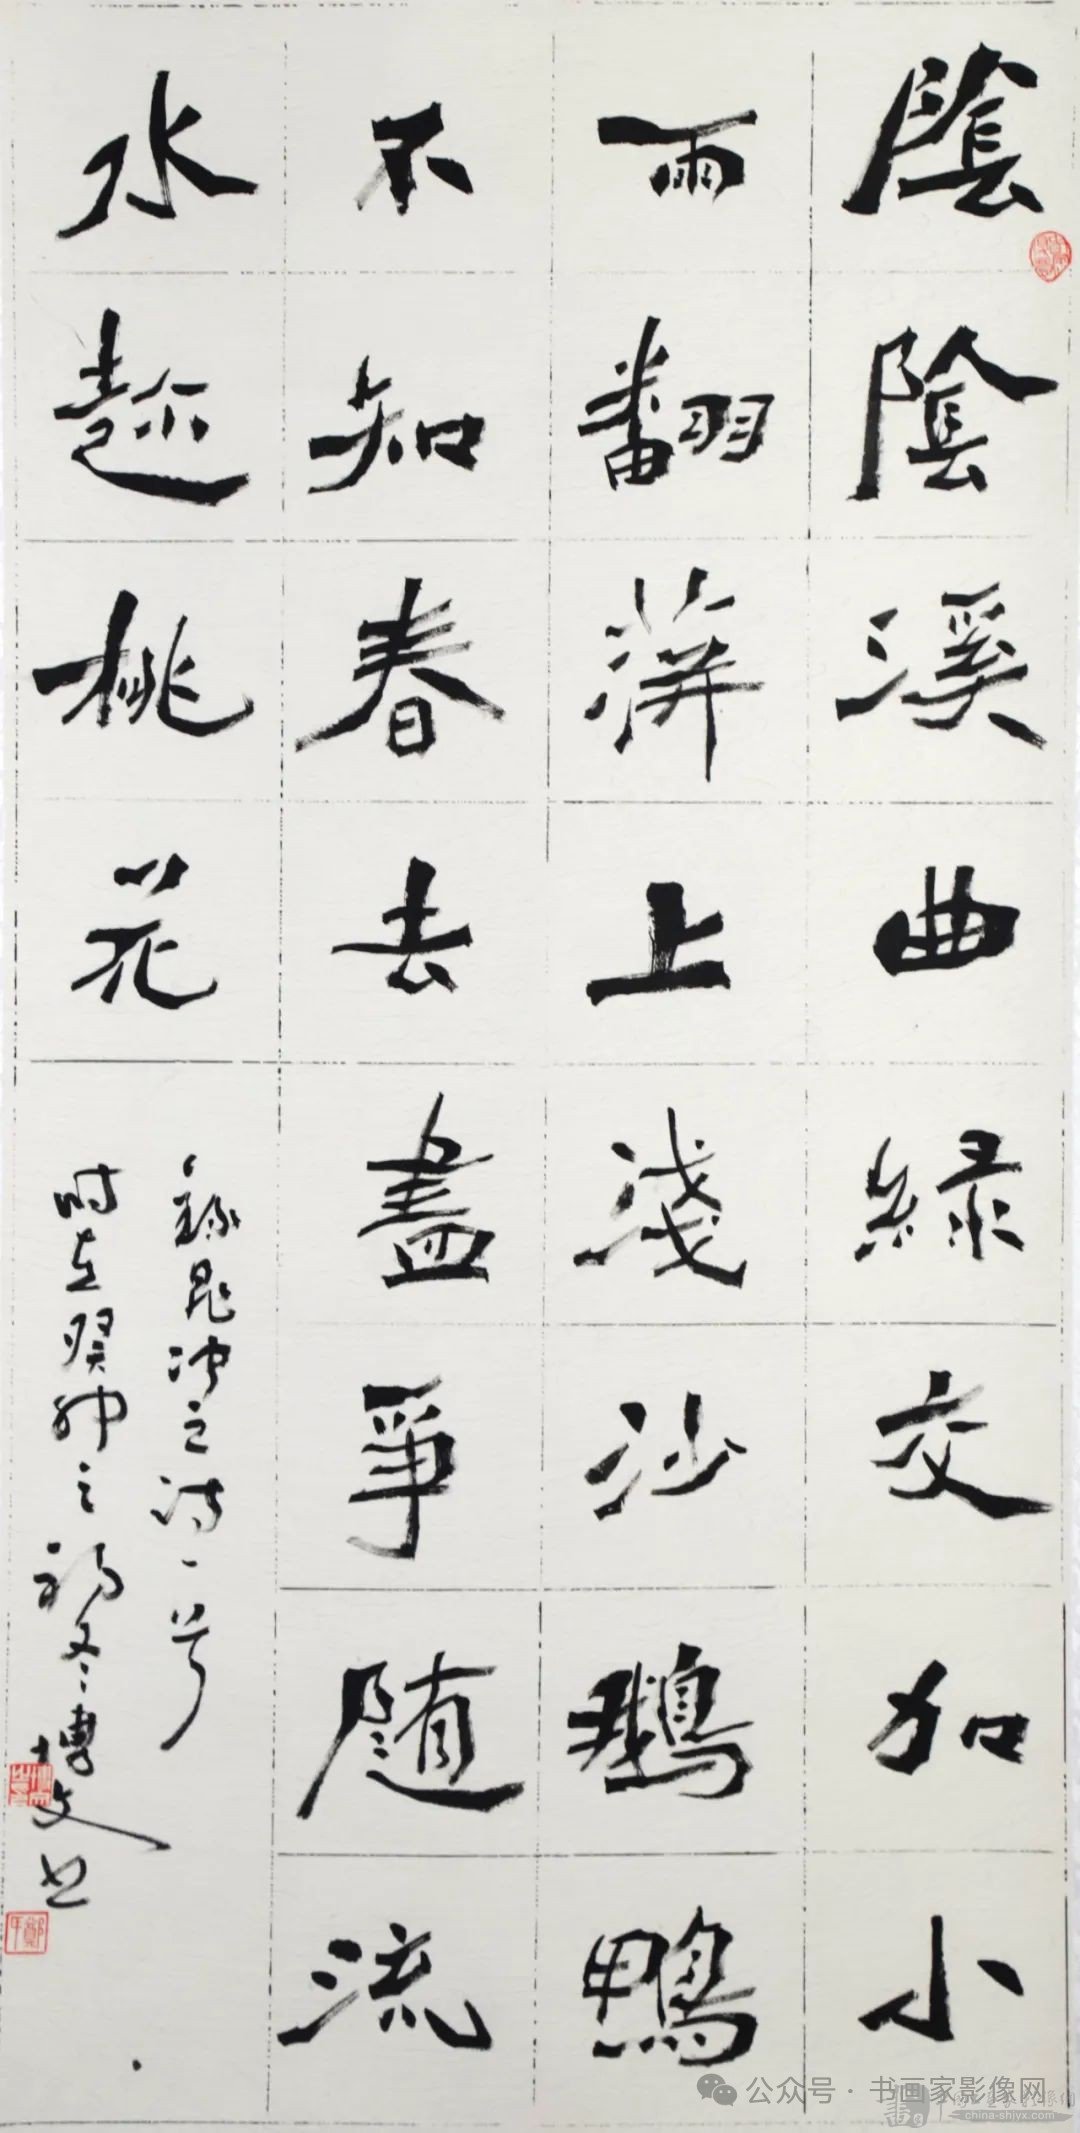 陰陰溪曲綠交加小
雨翻萍上淺沙鵝鴨
不知春去盡爭隨流
水趁桃花
錄晁冲之诗一首
时在癸卯之初冬博文书
公众号·书画家影像网
china-shjyx.com